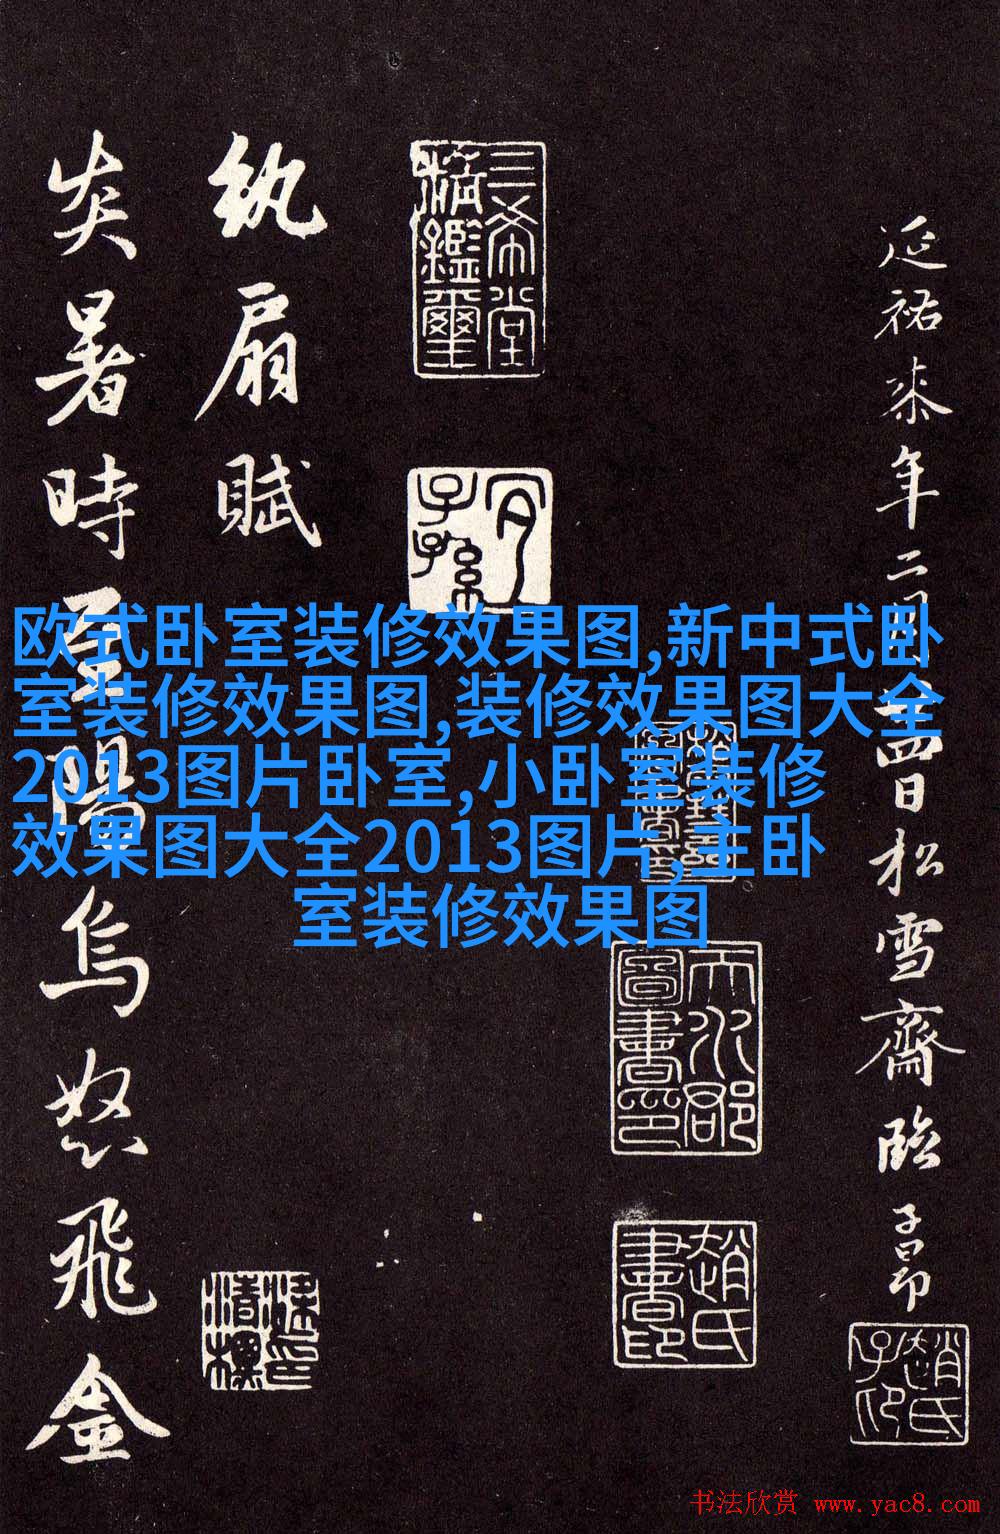 欧式卧室装修效果图,新中式卧
室装修效果图,装修效果图大全
2013图片卧室,小卧室装修
效果图大全2013图片,主卧
室装修效果图
延祐柒年二月四日松雪齋臨子昂
趙氏子印
天水郡圖書印
趙氏書印
三希堂
精鑑璽
宜子孫
紈扇賦
炎暑時至陽烏怒飛金
书法欣赏 www.yac8.com